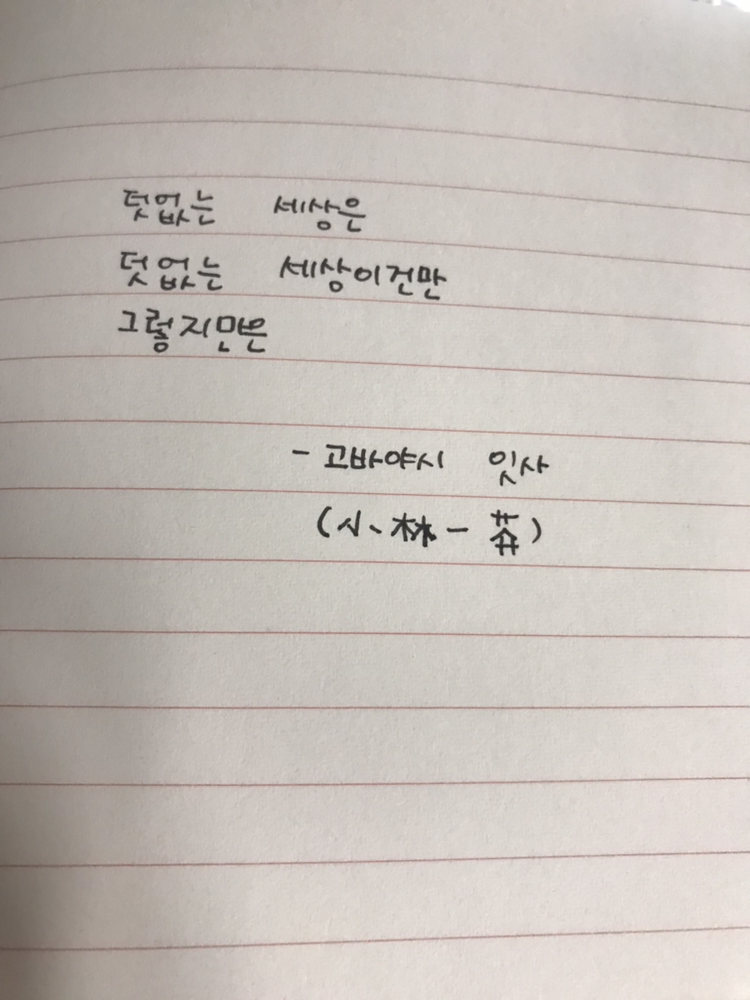 덧없는 세상은
덧없는 세상이건만
그렇지만은
- 고바야시 잇사
(小林一茶)